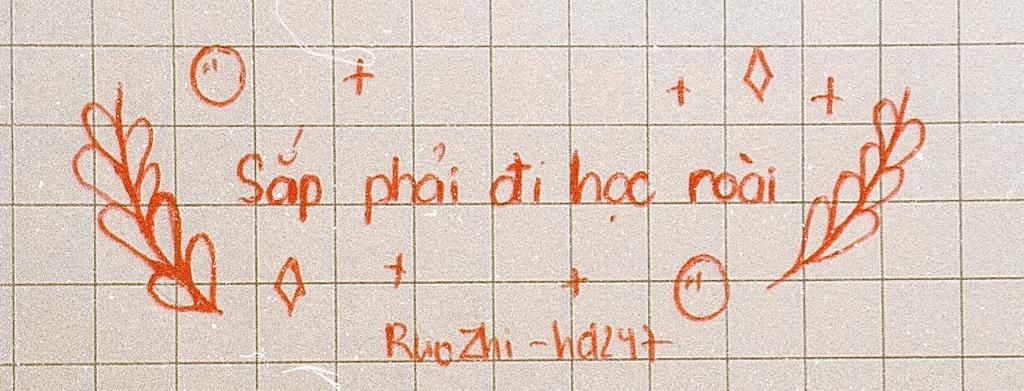 Sắp phải đi học roài
RuoZhi - hd247